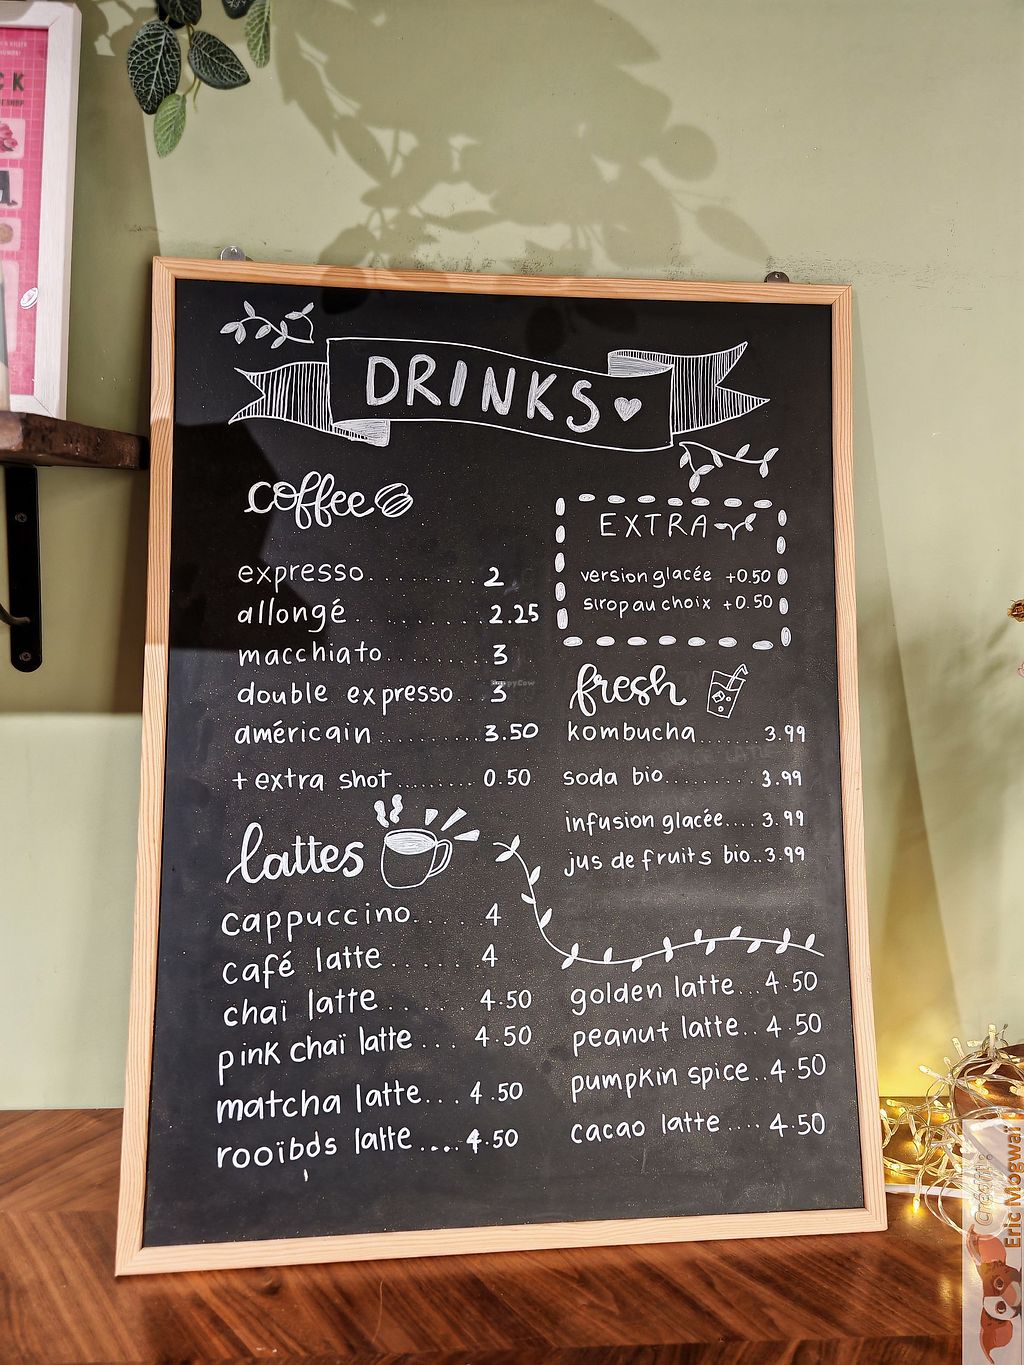 CK
ESHOP
DRINKS
coffee
expresso.......... 2
allongé .......... 2.25
macchiato......... 3
double expresso.. 3
américain ......... 3.50
+ extra shot........ 0.50
EXTRA
version glacée +0.50
sirop au choix +0.50
fresh
kombucha....... 3.99
soda bio......... 3.99
infusion glacée.... 3.99
jus de fruits bio..3.99
lattes
cappuccino..... 4
café latte ...... 4
chaï latte....... 4.50
pink chaï latte .... 4.50
matcha latte... 4.50
rooïbos latte .... 4.50
golden latte...4.50
peanut latte..4.50
pumpkin spice..4.50
cacao latte ....4.50
HappyCow
Crédit :
Eric Mogwai